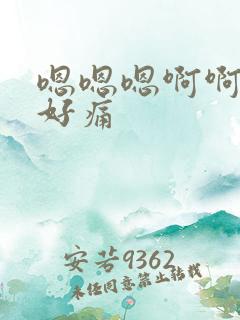 嗯嗯嗯啊啊
好痛
安若9362
未经同意禁止转载